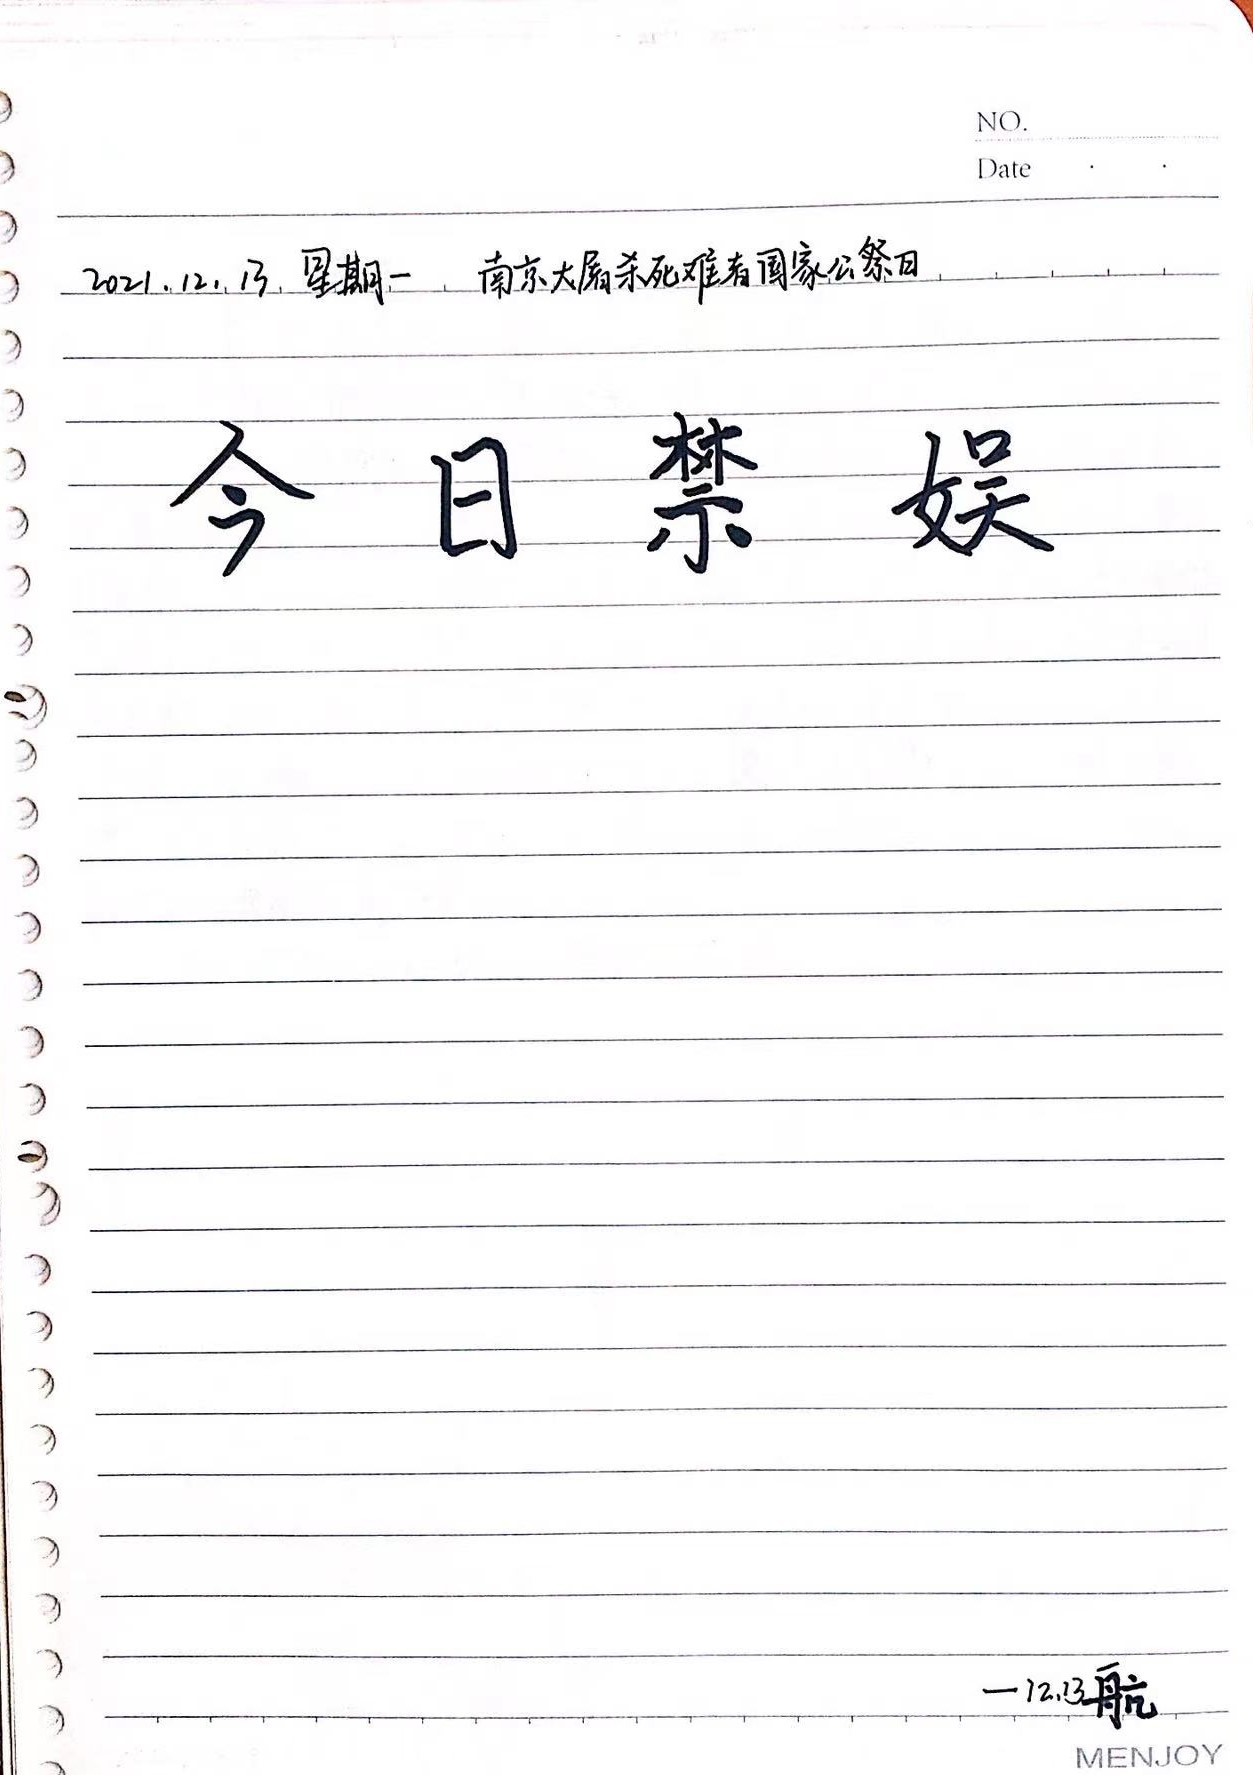 NO.
Date
2021.12.13. 星期一 南京大屠杀死难者国家公祭日
今日禁娱
—12.13航
MENJOY